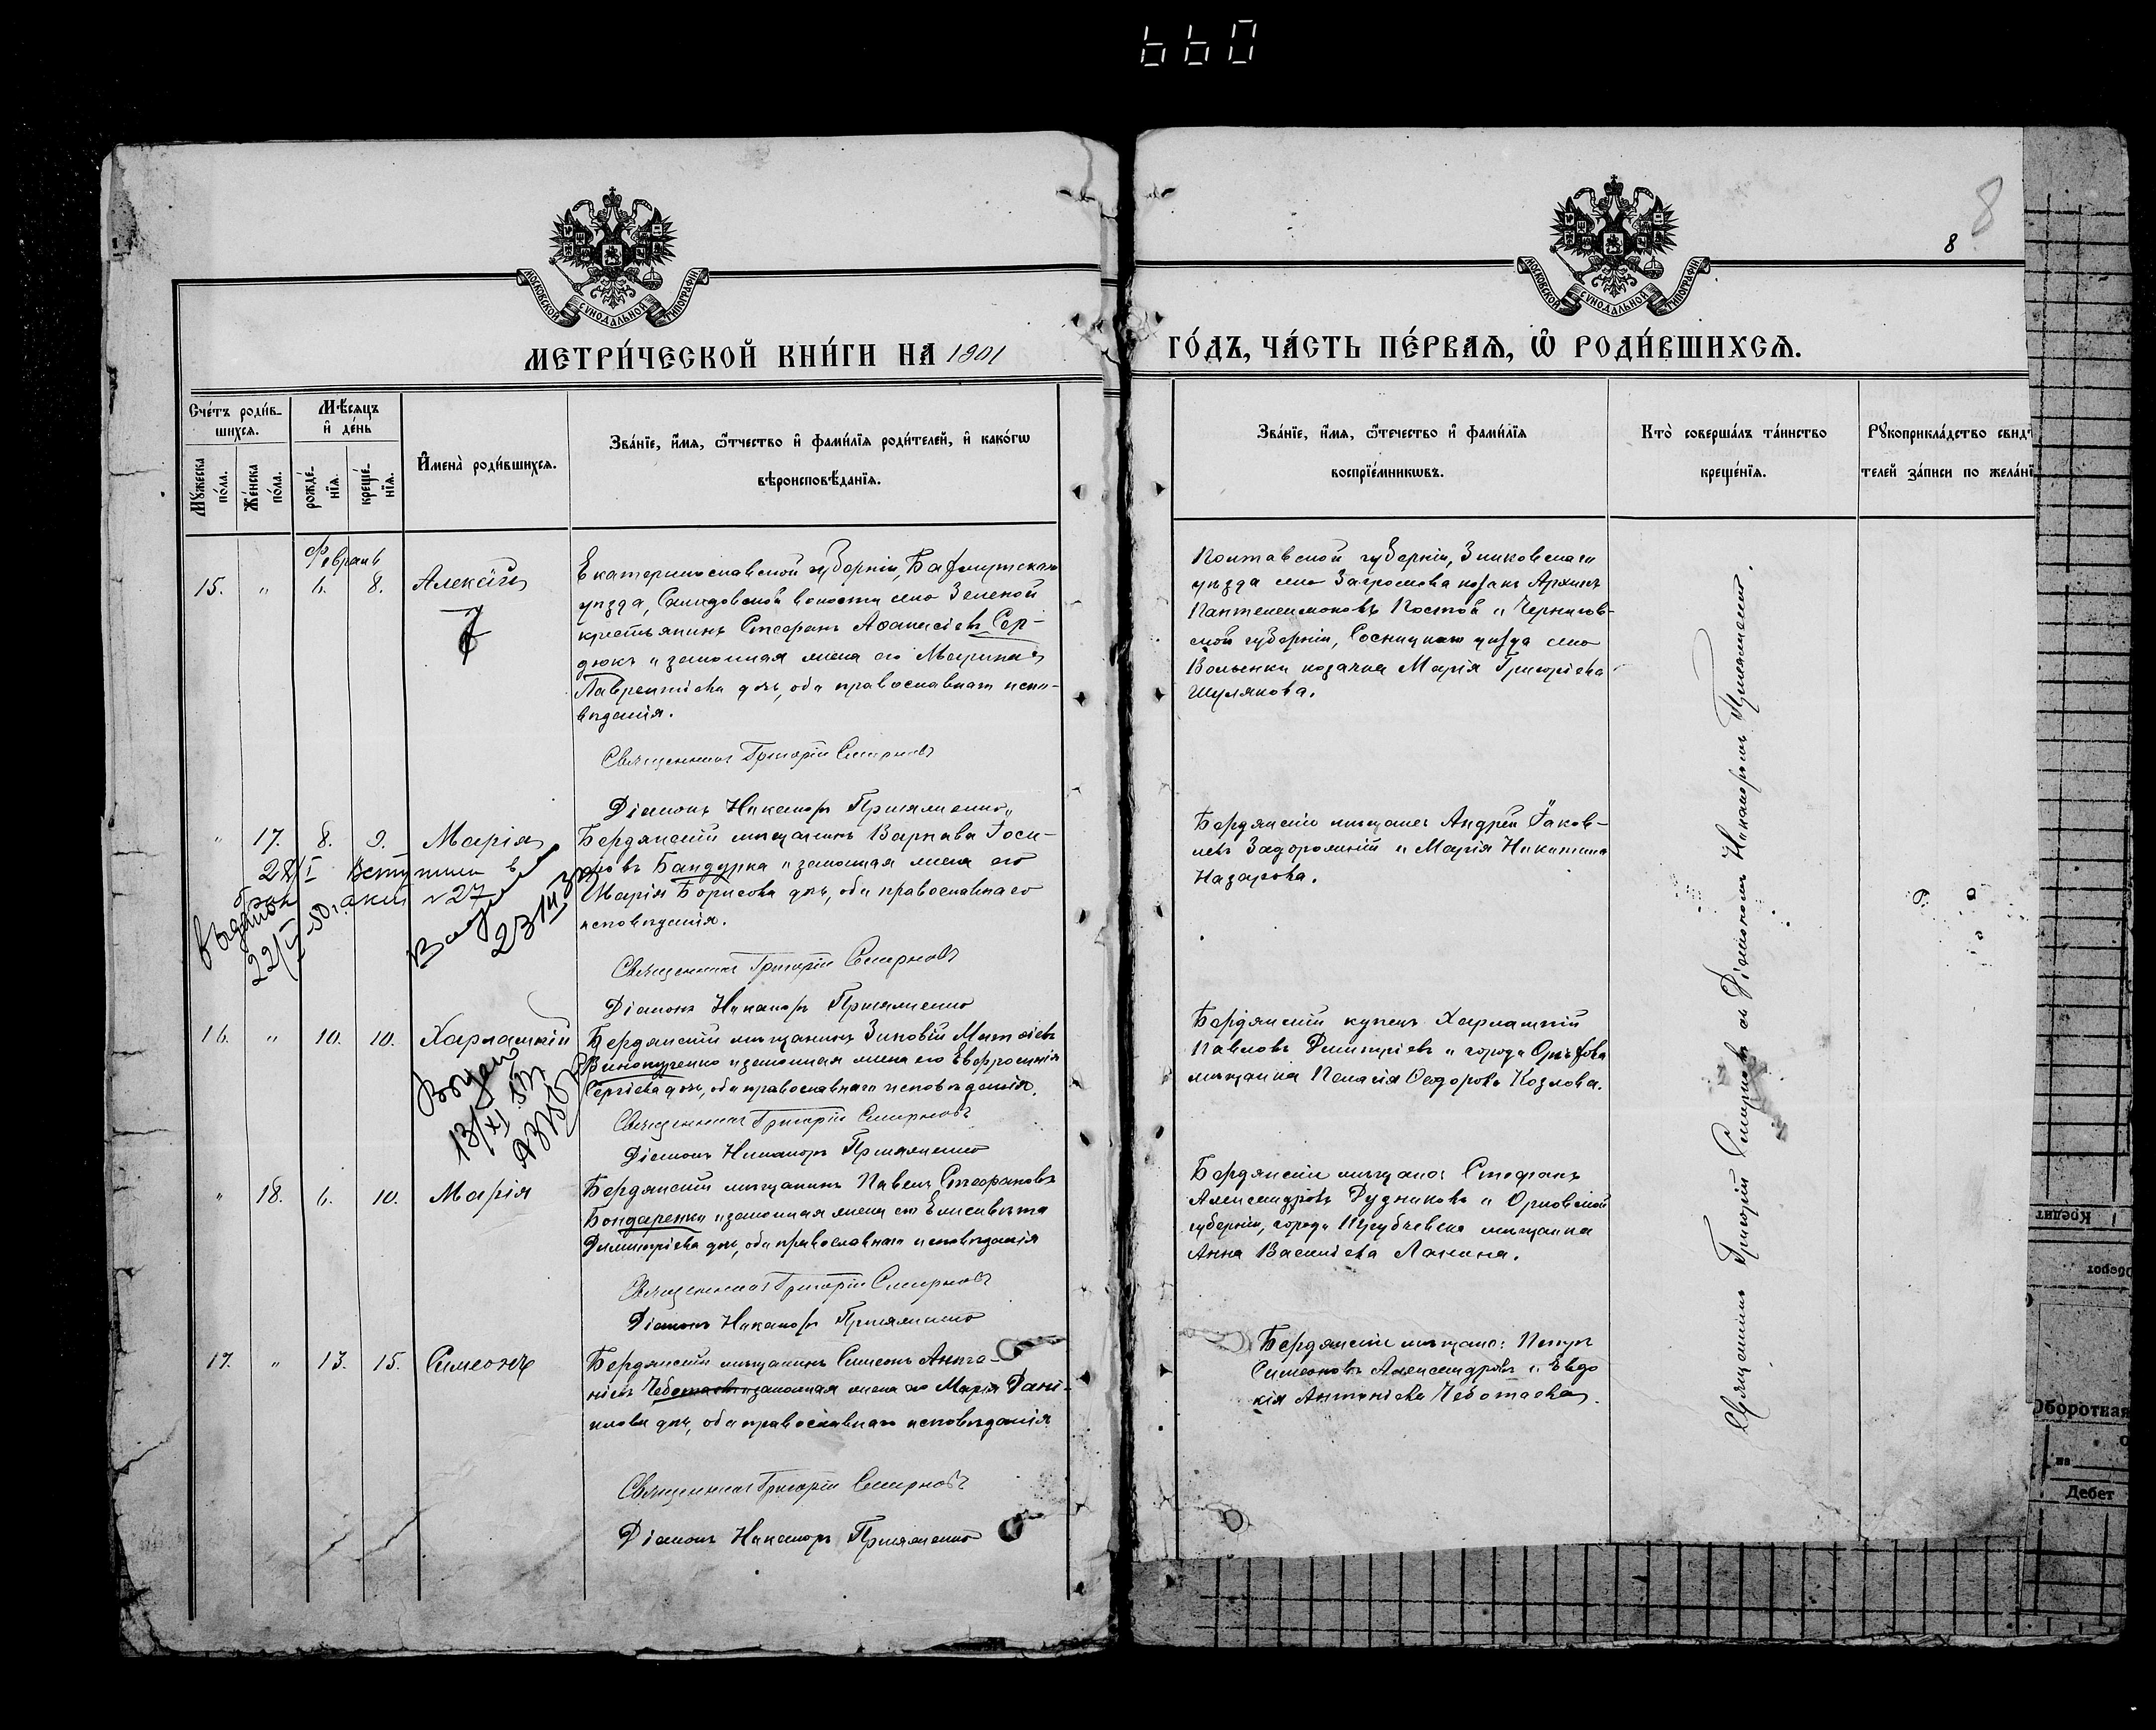 660
МОСКОВСКОЙ СѴНОДАЛЬНОЙ ТИПОГРАФІИ
МОСКОВСКОЙ СѴНОДАЛЬНОЙ ТИПОГРАФІИ
8
8
МЕТРИ́ЧЕСКОЙ КНИ́ГИ НА 1901
ГО́ДЪ, ЧА́СТЬ ПЕ́РВАѦ, Ѡ҆ РОДИ́ВШИХСѦ.
Сче́тъ роди́в-
шихсѧ.
Мѣ́сѧцъ
и҆ де́нь
Мꙋжеска по́ла.
Же́нска по́ла.
рожде́-
нїѧ.
креще́-
нїѧ.
И҆мена̀ роди́вшихсѧ.
Зва́нїе, и҆́мѧ, ѻ҆́тчество и҆ фами́лїѧ роди́телей, и҆ како́гѡ
вѣроисповѣ́данїѧ.
Зва́нїе, и҆́мѧ, ѻ҆те́чество и҆ фами́лїѧ
воспрїе́мникѡвъ.
Кто̀ соверша́лъ та́инство
креще́нїѧ.
Рꙋкоприкла́дство свид
телей за́писи по жела́нї
Февраль
15. " 6. 8. Алексій
Екатеринославской губерніи, Бахмутскаго
уѣзда, Селидовской волости село Зеленой
крестьянинъ Стефанъ Аѳанасіевъ Сер-
дюкъ и законная жена его Марина
Лаврентіева дочь, оба православнаго испо-
вѣданія.
Священникъ Григорій Смирновъ
Діаконъ Никаноръ Пригляменко
Полтавской губерніи, Зиньковскаго
уѣзда село Загрунова козакъ Архипъ
Пантелеимоновъ Костой и Чернигов-
ской губерніи, Сосницкаго уѣзда село
Волынки козачка Марія Григоріева
Шулякова.
" 17. 8. 9. Марія
Бердянскій мѣщанинъ Варнава Іоси-
фовъ Бандурка и законная жена его
Марія Борисова дочь, оба православнаго
исповѣданія.
Вступила в
брак акт №27
выдано
22/V-50г.
23 III 30
Священникъ Григорій Смирновъ
Діаконъ Никаноръ Пригляменко
Бердянскіе мѣщане Андрей Іаков-
левъ Задорожній и Марія Никитина
Назарова.
16. " 10. 10. Харлампій
Бердянскій мѣщанинъ Зиновій Матѳіевъ
Винокуренко и законная жена его Евфросинія
Сергіева дочь, оба православнаго исповѣданія.
13/XI
Священникъ Григорій Смирновъ
Діаконъ Никаноръ Пригляменко
Бердянскій купецъ Харлампій
Павловъ Димитріевъ и города Орѣхова
мѣщанка Пелагія Ѳеодорова Козлова.
" 18. 6. 10. Марія
Бердянскій мѣщанинъ Павелъ Стефановъ
Бондаренко и законная жена его Елисавета
Димитріева дочь, оба православнаго исповѣданія
Священникъ Григорій Смирновъ
Діаконъ Никаноръ Пригляменко
Бердянскіе мѣщане: Стефанъ
Александровъ Дудниковъ и Орловской
губерніи, города мѣщанка
Анна Василіева Ланина.
17. " 13. 15. Симеонъ
Бердянскій мѣщанинъ Симеонъ Анто-
ніевъ Чеботаевъ и законная жена его Марія Дани-
илова дочь, оба православнаго исповѣданія
Священникъ Григорій Смирновъ
Діаконъ Никаноръ Пригляменко
Бердянскіе мѣщане: Петръ
Симеоновъ Александровъ и Евдо
кія Антоніева Чеботаева.
Священникъ Григорій Смирновъ съ Діакономъ Никаноромъ Пригляменко.
Кредит
Оборот
Оборотная
на
Дебет